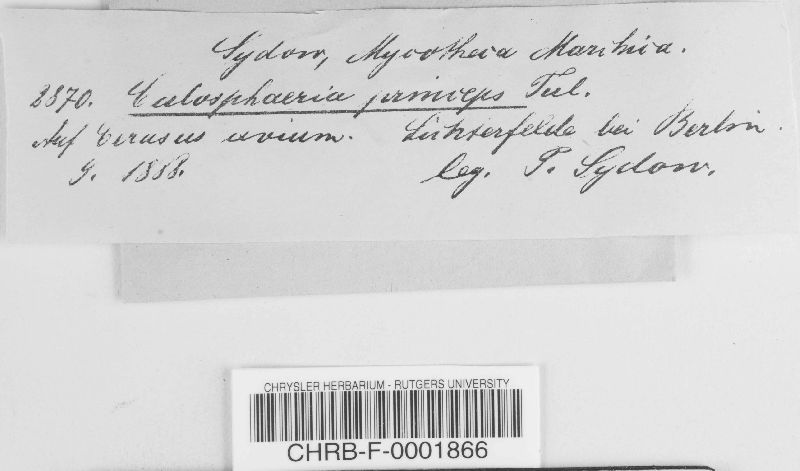 Sydow, Mycotheca Marchica.
2870. Calosphaeria princeps Tul.
Auf Cerasus avium. Lichterfelde bei Berlin.
9. 1888. leg. P. Sydow.
CHRYSLER HERBARIUM - RUTGERS UNIVERSITY
CHRB-F-0001866